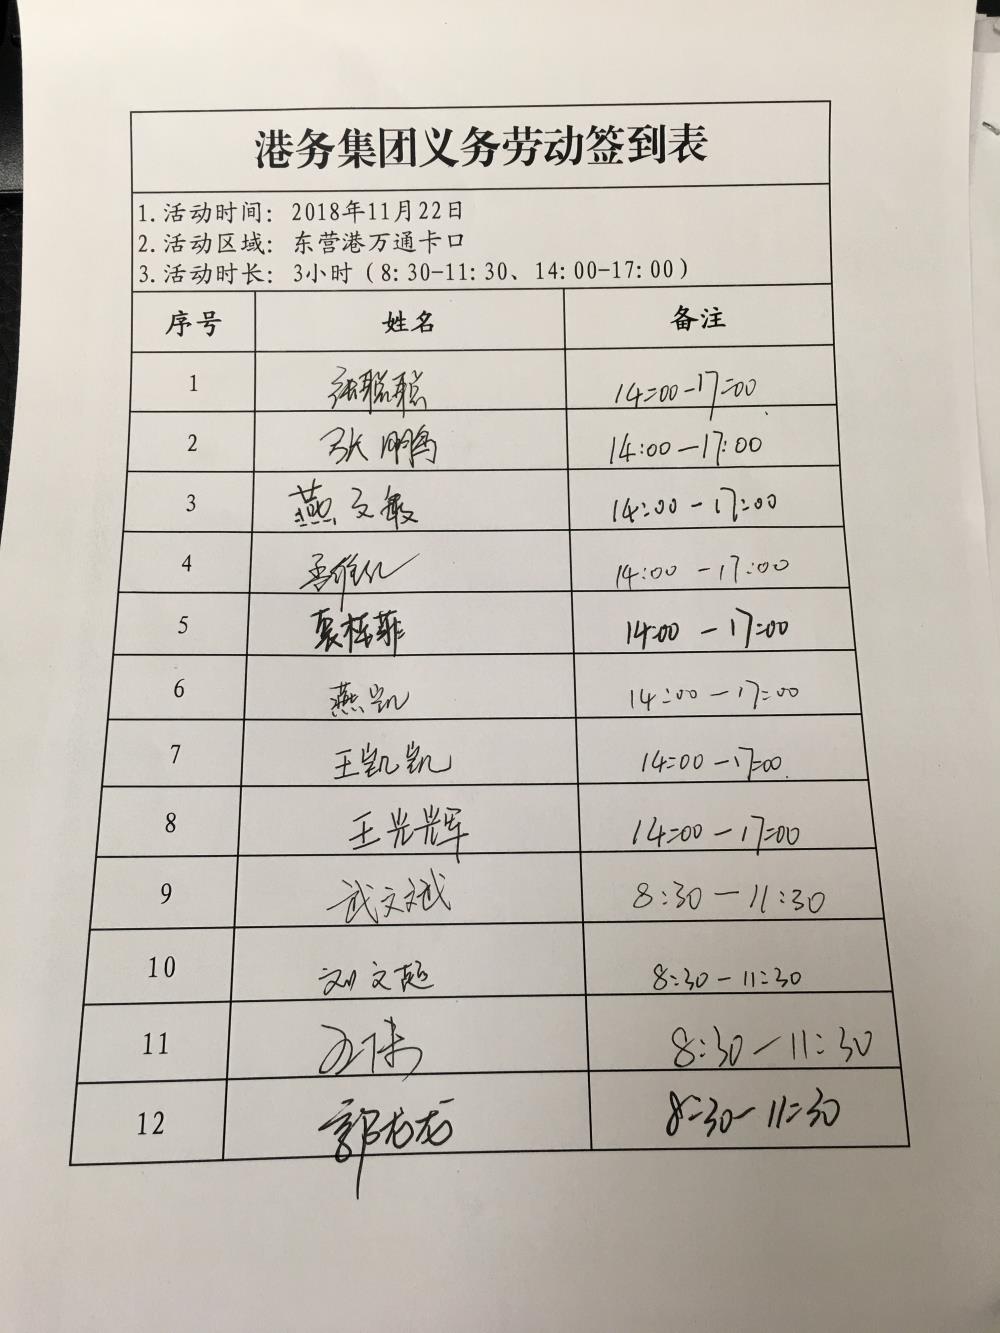 港务集团义务劳动签到表
1.活动时间: 2018年11月22日
2.活动区域: 东营港万通卡口
3.活动时长: 3小时（8:30-11:30、14:00-17:00）
序号 姓名 备注
1 张聪聪 14:00-17:00
2 张鹏 14:00-17:00
3 燕文敏 14:00-17:00
4 14:00-17:00
5 袁栋菲 14:00-17:00
6 燕凯 14:00-17:00
7 王凯凯 14:00-17:00
8 王光辉 14:00-17:00
9 武文斌 8:30-11:30
10 刘文超 8:30-11:30
11 8:30-11:30
12 郭龙龙 8:30-11:30